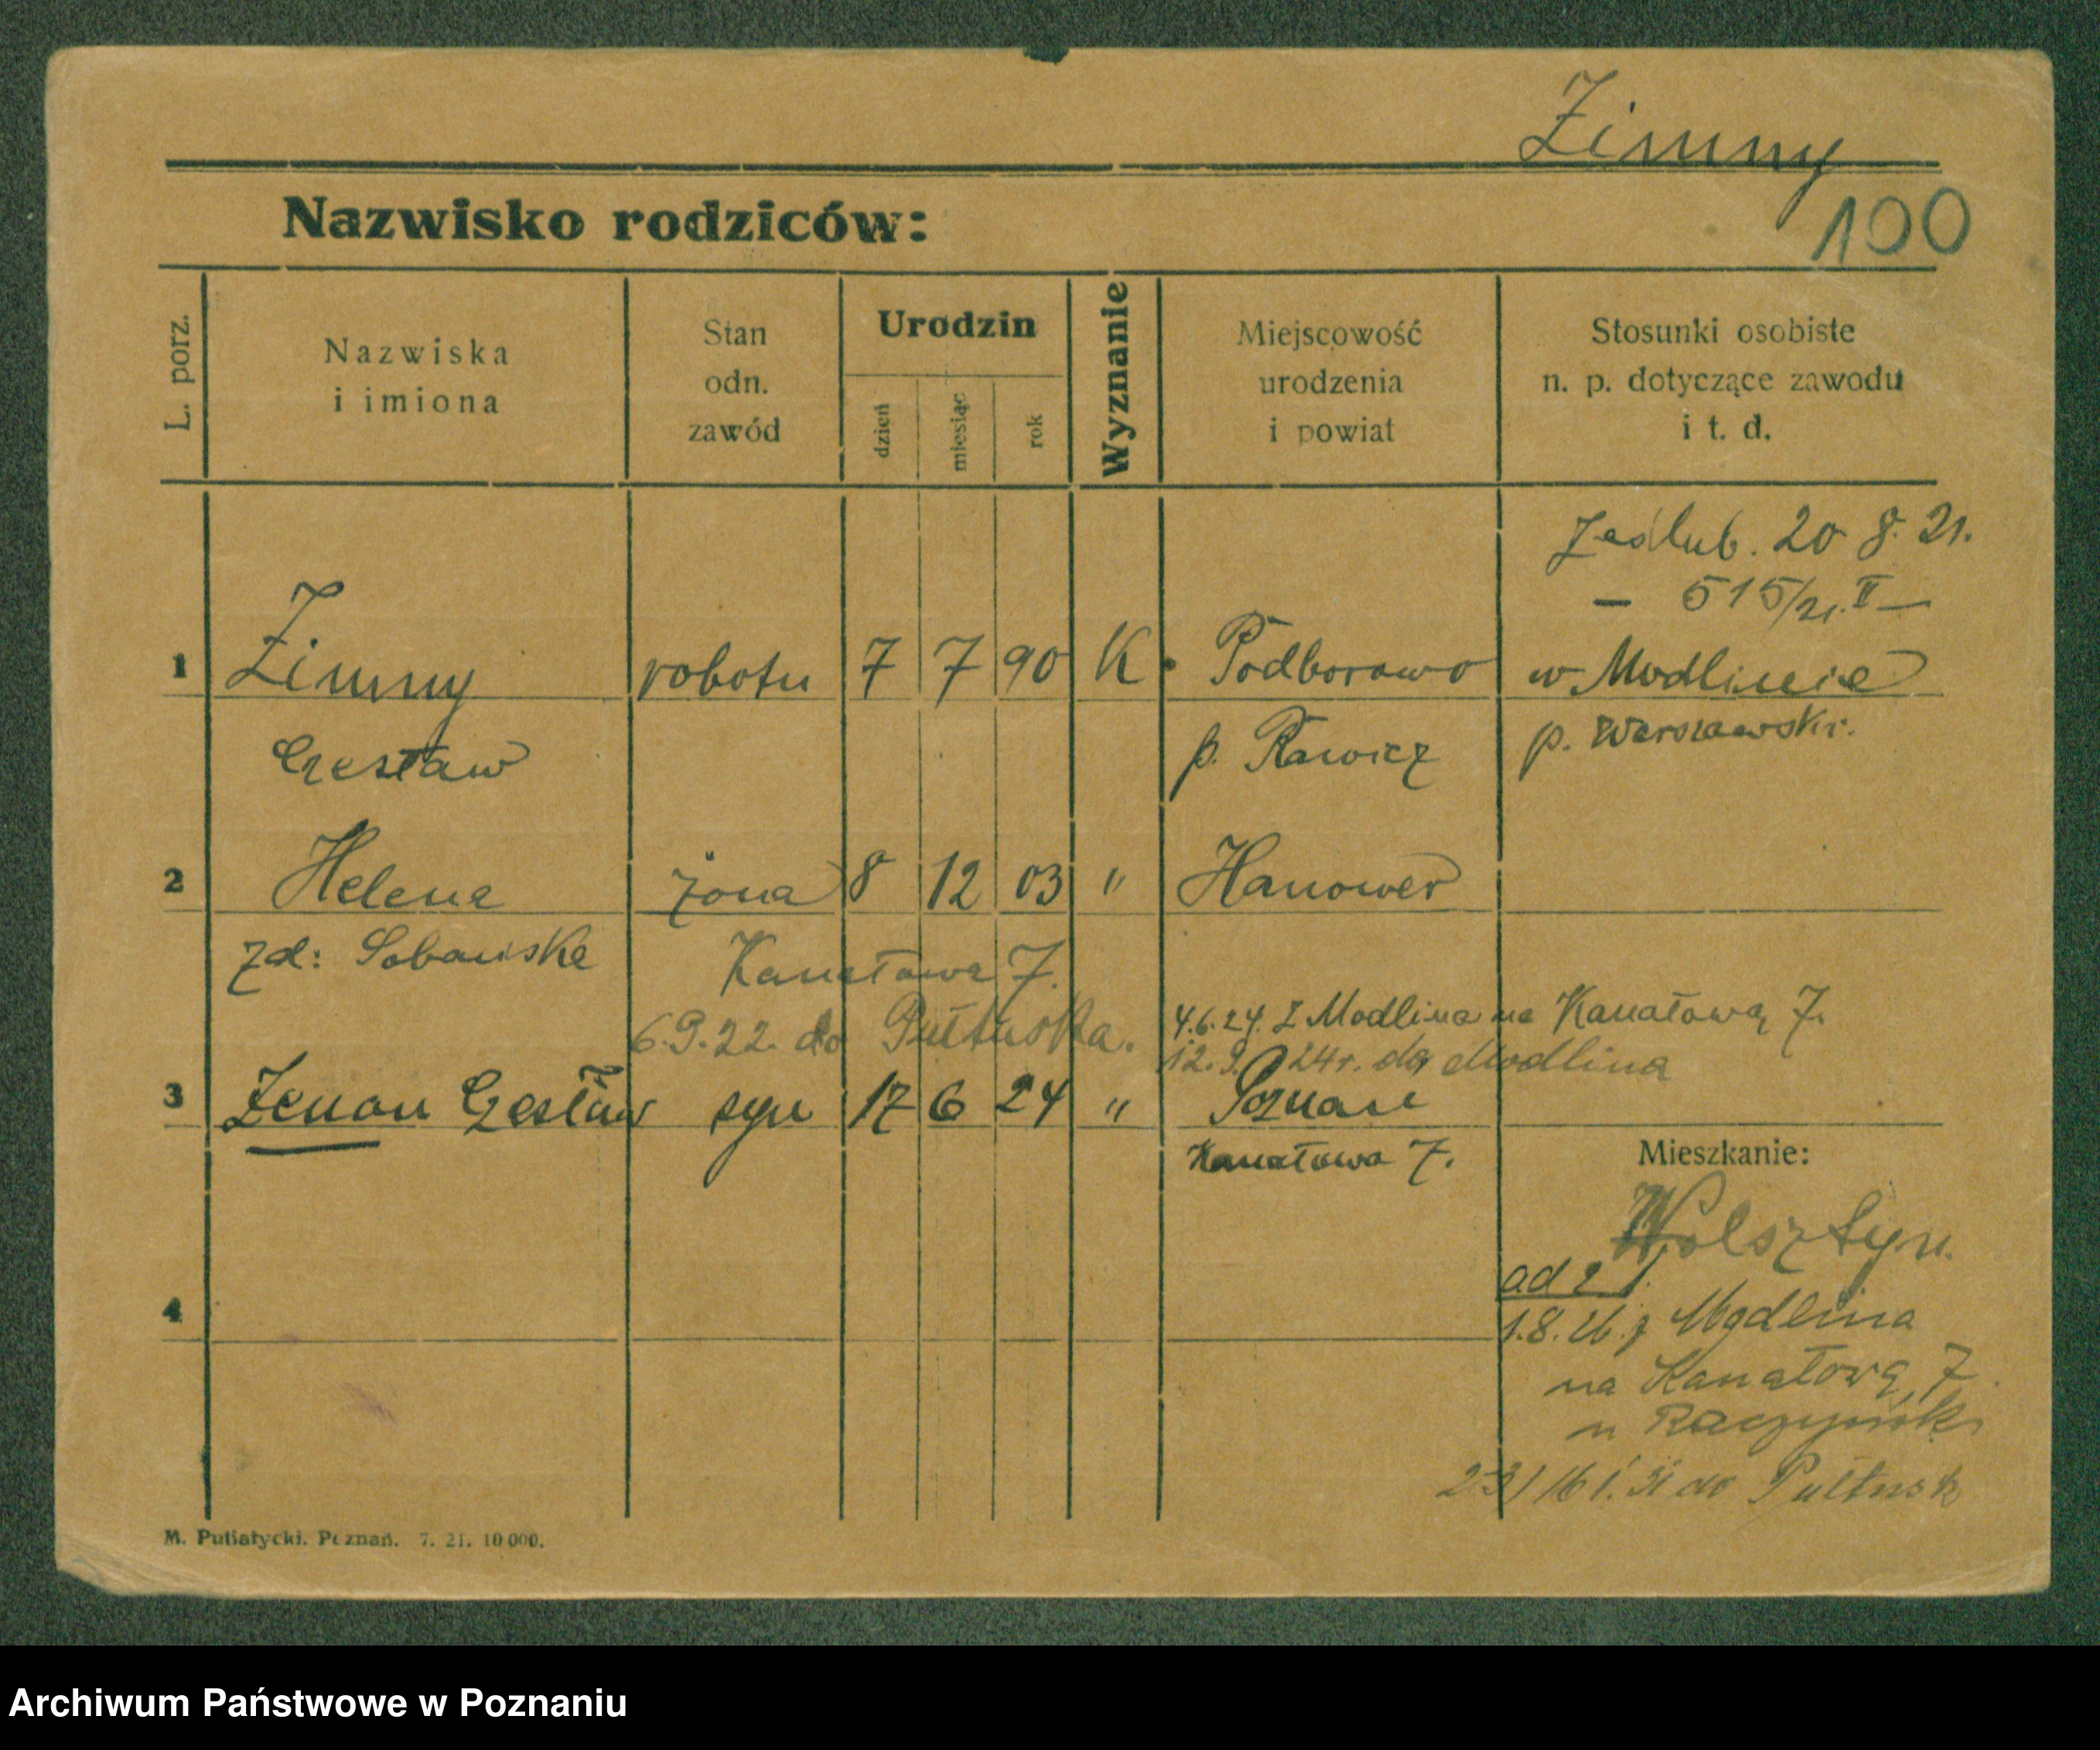 Zimny
100
Nazwisko rodziców:
L. porz.
Nazwiska
i imiona
Stan
odn.
zawód
Urodzin
dzień
miesiąc
rok
Wyznanie
Miejscowość
urodzenia
i powiat
Stosunki osobiste
n. p. dotyczące zawodu
i t. d.
Zaślub. 20 8. 21.
— 515/21. II —
1 Zimny robotn 7 7 90 K. Podborowo w Modlinie
Czesław p. Rawicz p. Warszawski.
2 Helena żona 8 12 03 " Hanower
zd: Sobańska Kanałowa 7.
6.9.22. do Pułtuska. 4.6.24. z Modlina na Kanałową 7.
12.9. 24r. do Modlina
3 Zenon Czesław syn 17 6 24 " Poznań
Kanałowa 7.
Mieszkanie:
Wolsztyn.
ad 2 1.
4
1.8.26. z Modlina
na Kanałową 7.
u Raczyńsk
2-3/ 16 1. 31 do Pułtusk
M. Putiatycki. Poznań. 7. 21. 10 000.
Archiwum Państwowe w Poznaniu